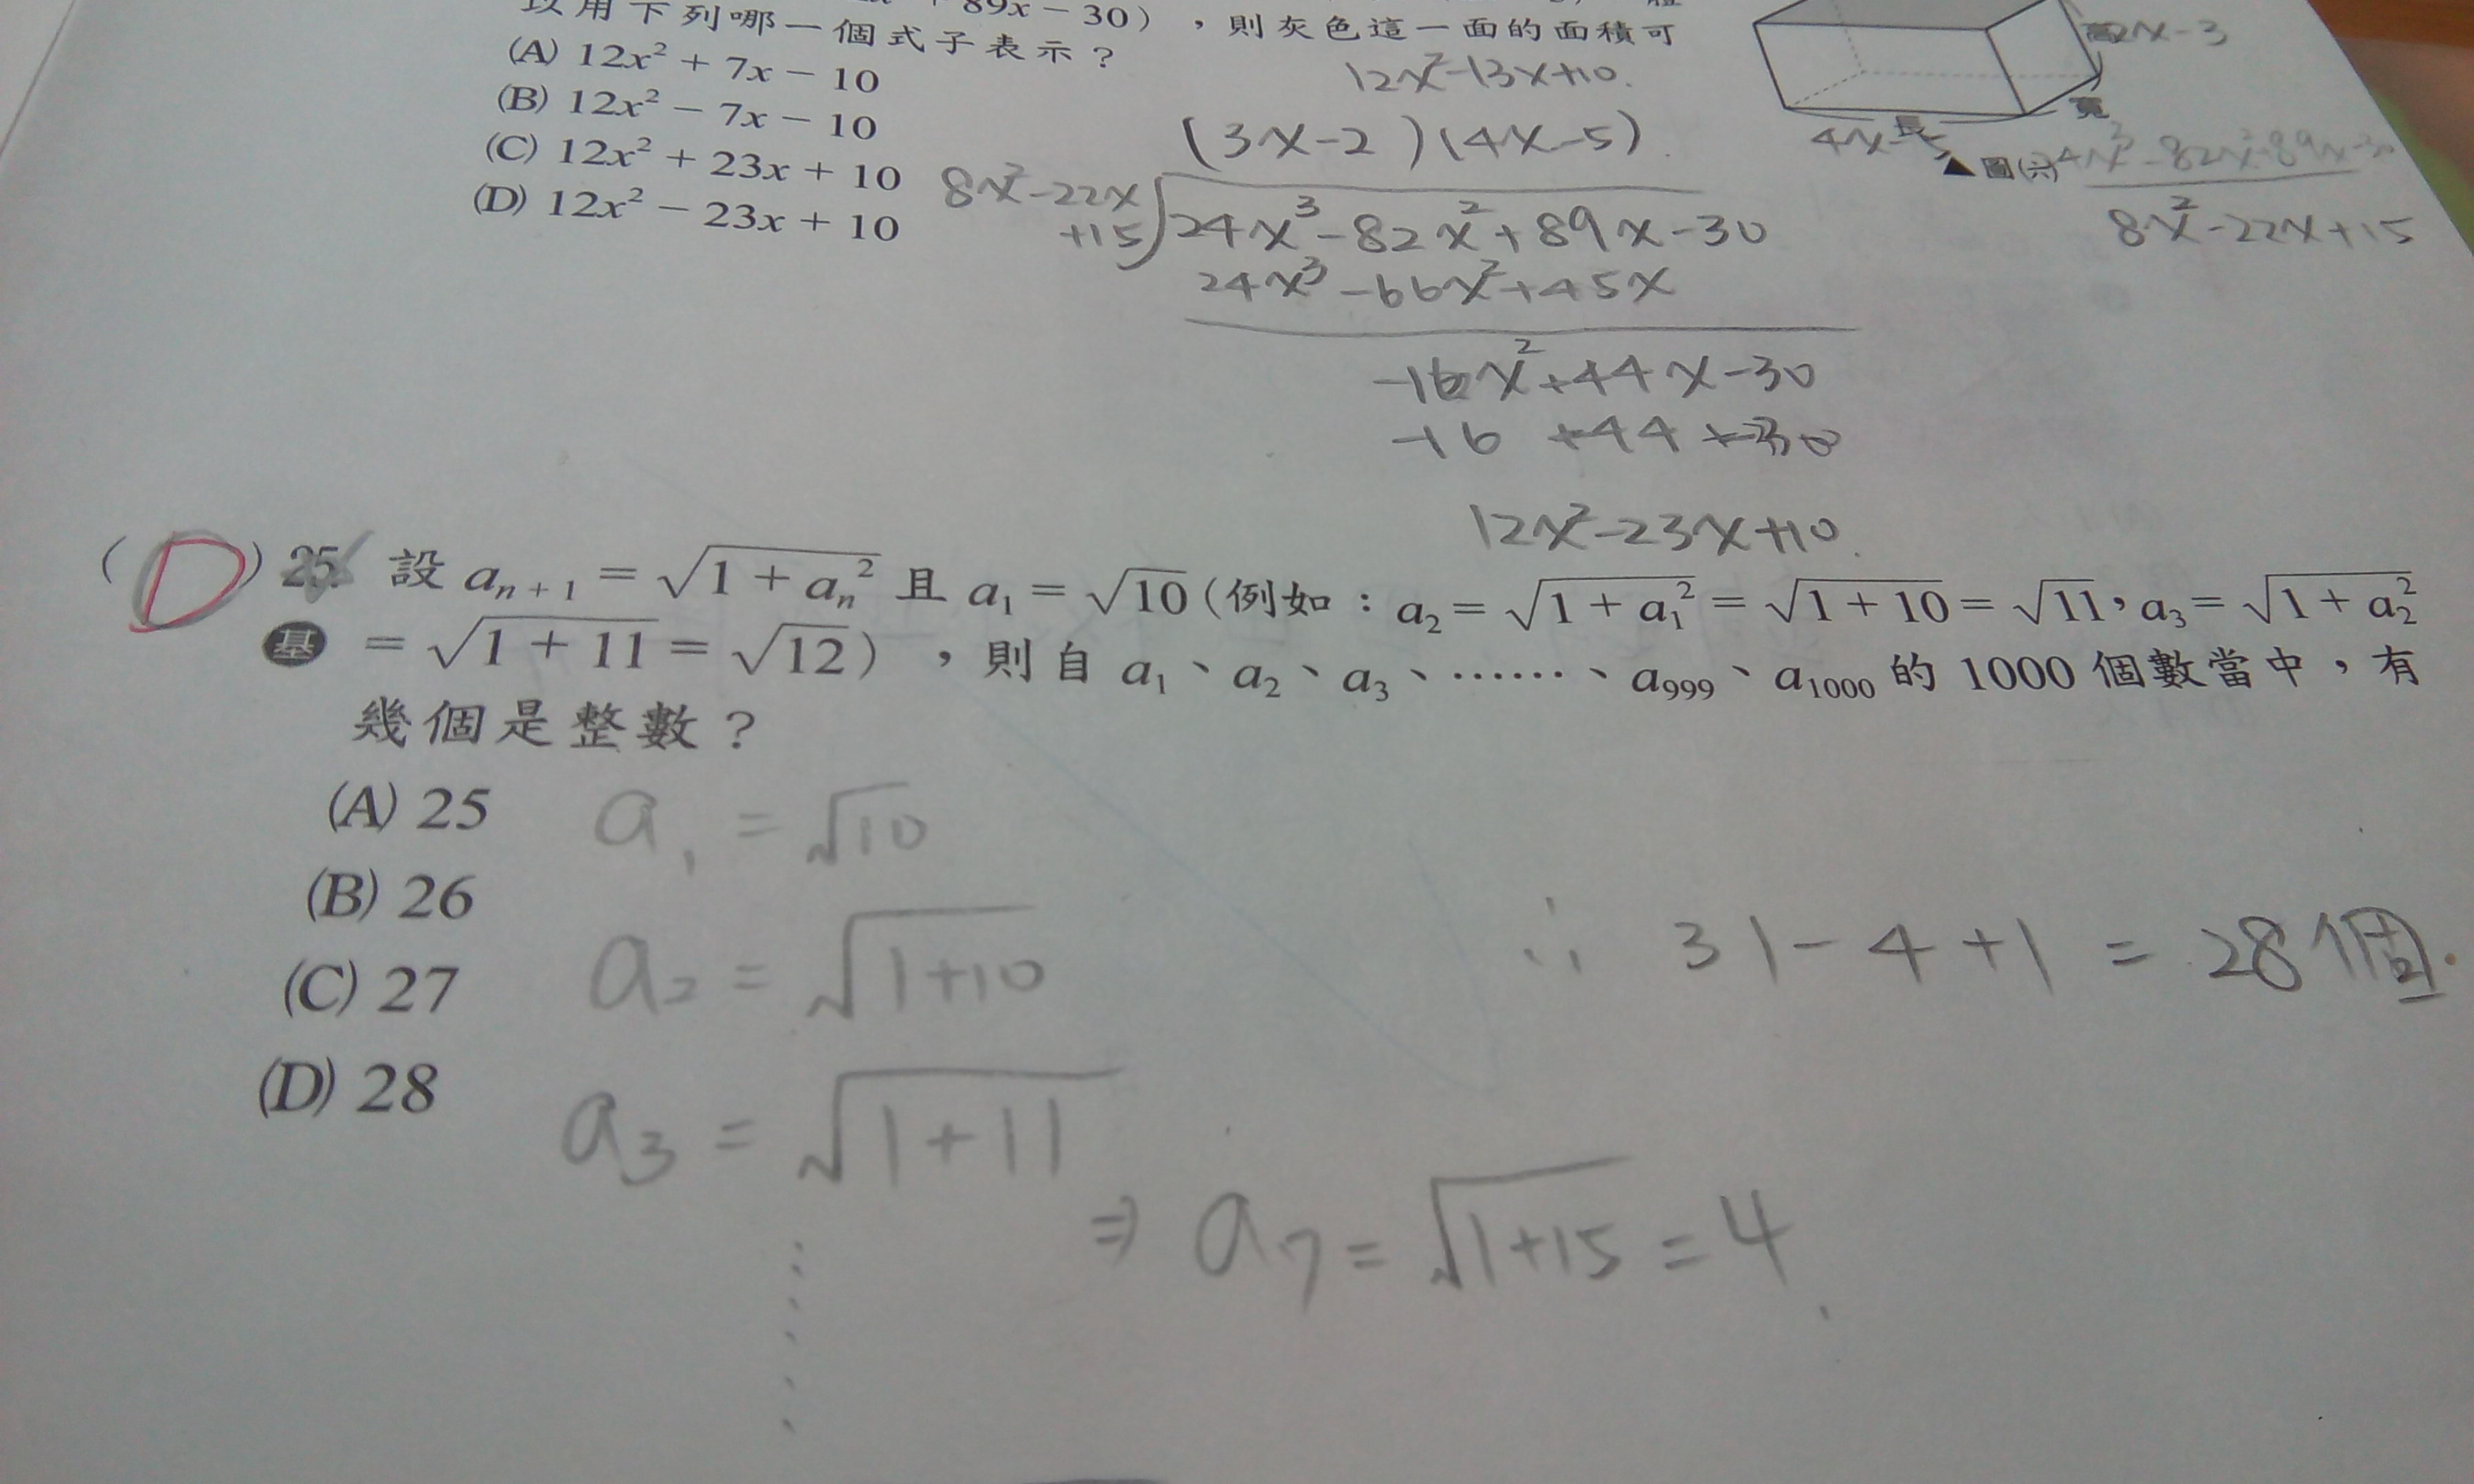 89x − 30），則灰色這一面的面積可
以用下列哪一個式子表示？
(A) 12x² + 7x − 10
(B) 12x² − 7x − 10
(C) 12x² + 23x + 10
(D) 12x² − 23x + 10
12x²-13x+10.
(3x-2)(4x-5)
8x²-22x+15
24x³-82x²+89x-30
24x³-66x²+45x
-16x²+44x-30
-16 +44 -30
12x²-23x+10.
2x-3
高
寬
長
4x-5
▲圖(六)
24x³-82x²+89x-30
8x²-22x+15
(D) 25. 設 aₙ₊₁ = √(1 + aₙ²) 且 a₁ = √10 (例如：a₂ = √(1 + a₁²) = √(1 + 10) = √11，a₃ = √(1 + a₂²)
基 = √(1 + 11) = √12)，則自 a₁、a₂、a₃、……、a₉₉₉、a₁₀₀₀ 的 1000 個數當中，有
幾個是整數？
(A) 25
(B) 26
(C) 27
(D) 28
a₁ = √10
a₂ = √(1+10)
a₃ = √(1+11)
⇒ a₇ = √(1+15) = 4.
∴ 31-4+1 = 28個.